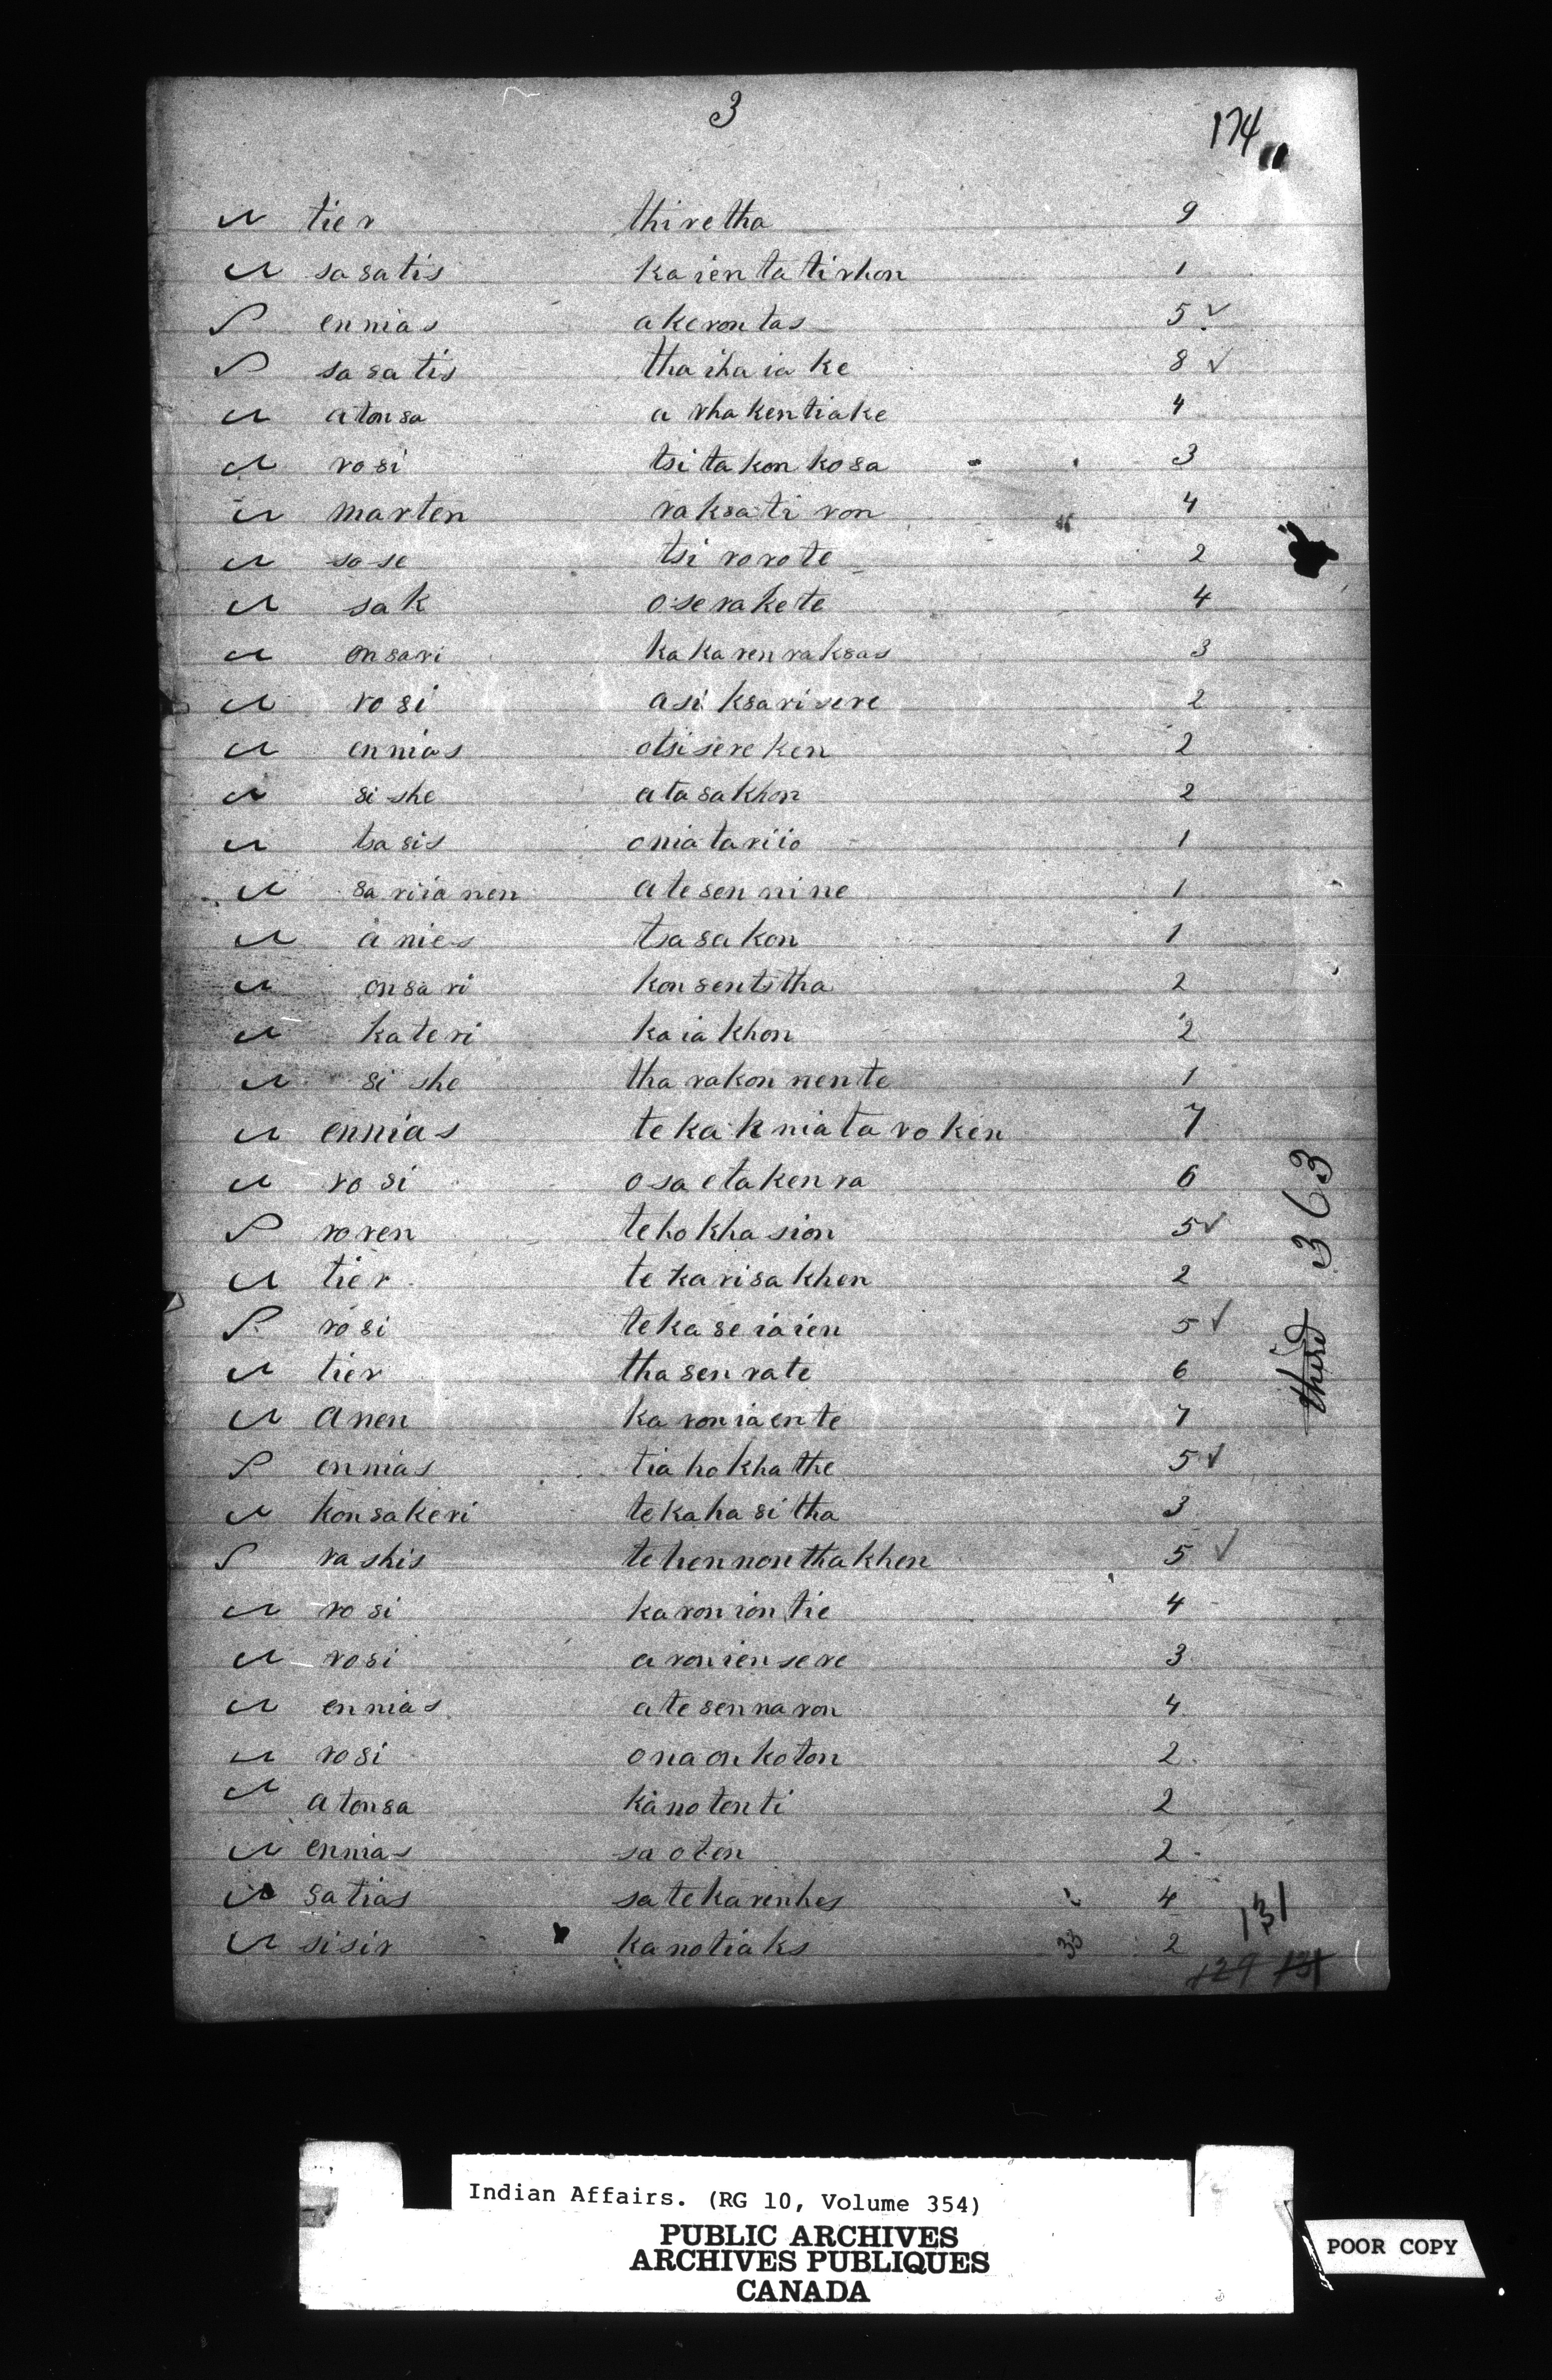 3
174
tier thiretha 9
sasatis kaientatirhon 1
ennias akerontas 5 ✓
sasatis thaihaiake 8 ✓
atonsa arhakentiake 4
rosi tsitakonkosa 3
marten raksatiron 4
sose tsirorote 2
sak oserakete 4
onsari kakarenraksas 3
rosi asiksarisere 2
ennias otsisereken 2
sishe atasakhon 2
tsasis oniatariio 1
sariianen atesennine 1
anies tsasakon 1
onsari konsentstha 2
kateri kaiakhon 2
sishe tharakonnente 1
ennias tekakniataroken 7
rosi osaetakenra 6
roren tehokhasion 5 ✓
tier tekarisakhen 2
rosi tekaseiaien 5 ✓
tier thasenrate 6
anen karoniaente 7
ennias tiahokhathe 5 ✓
konsakeri tekahasitha 3
rashis tehennonthakhen 5 ✓
rosi karoniontie 4
rosi aroniensere 3
ennias atesennaron 4
rosi onaonkoton 2
atonsa kanotenti 2
ennias saoten 2
satias satekarenhes 4
sisir kanotiaks 33 2
131
129 131
third 363
Indian Affairs. (RG 10, Volume 354)
PUBLIC ARCHIVES
ARCHIVES PUBLIQUES
CANADA
POOR COPY